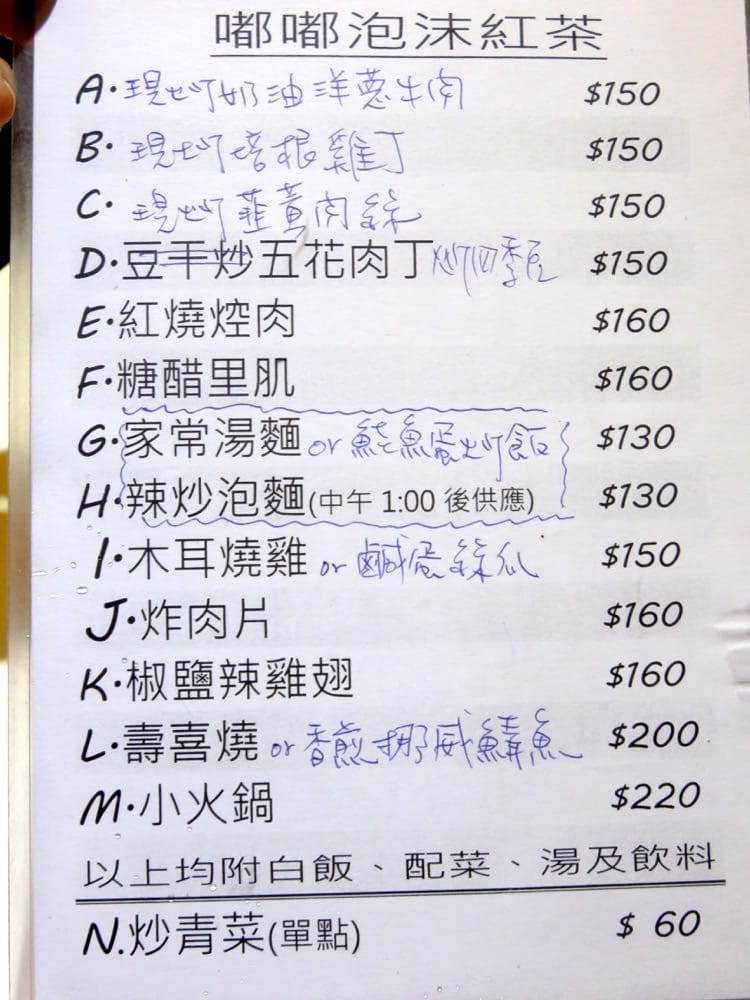 嘟嘟泡沫紅茶
A·現炒奶油洋蔥牛肉 $150
B·現炒培根雞丁 $150
C·現炒韮黃肉絲 $150
D·豆干炒五花肉丁炒四季豆 $150
E·紅燒焢肉 $160
F·糖醋里肌 $160
G·家常湯麵 or 鮭魚蛋炒飯 $130
H·辣炒泡麵(中午 1:00 後供應) $130
I·木耳燒雞 or 鹹蛋絲瓜 $150
J·炸肉片 $160
K·椒鹽辣雞翅 $160
L·壽喜燒 or 香煎挪威鯖魚 $200
M·小火鍋 $220
以上均附白飯、配菜、湯及飲料
N.炒青菜(單點) $ 60